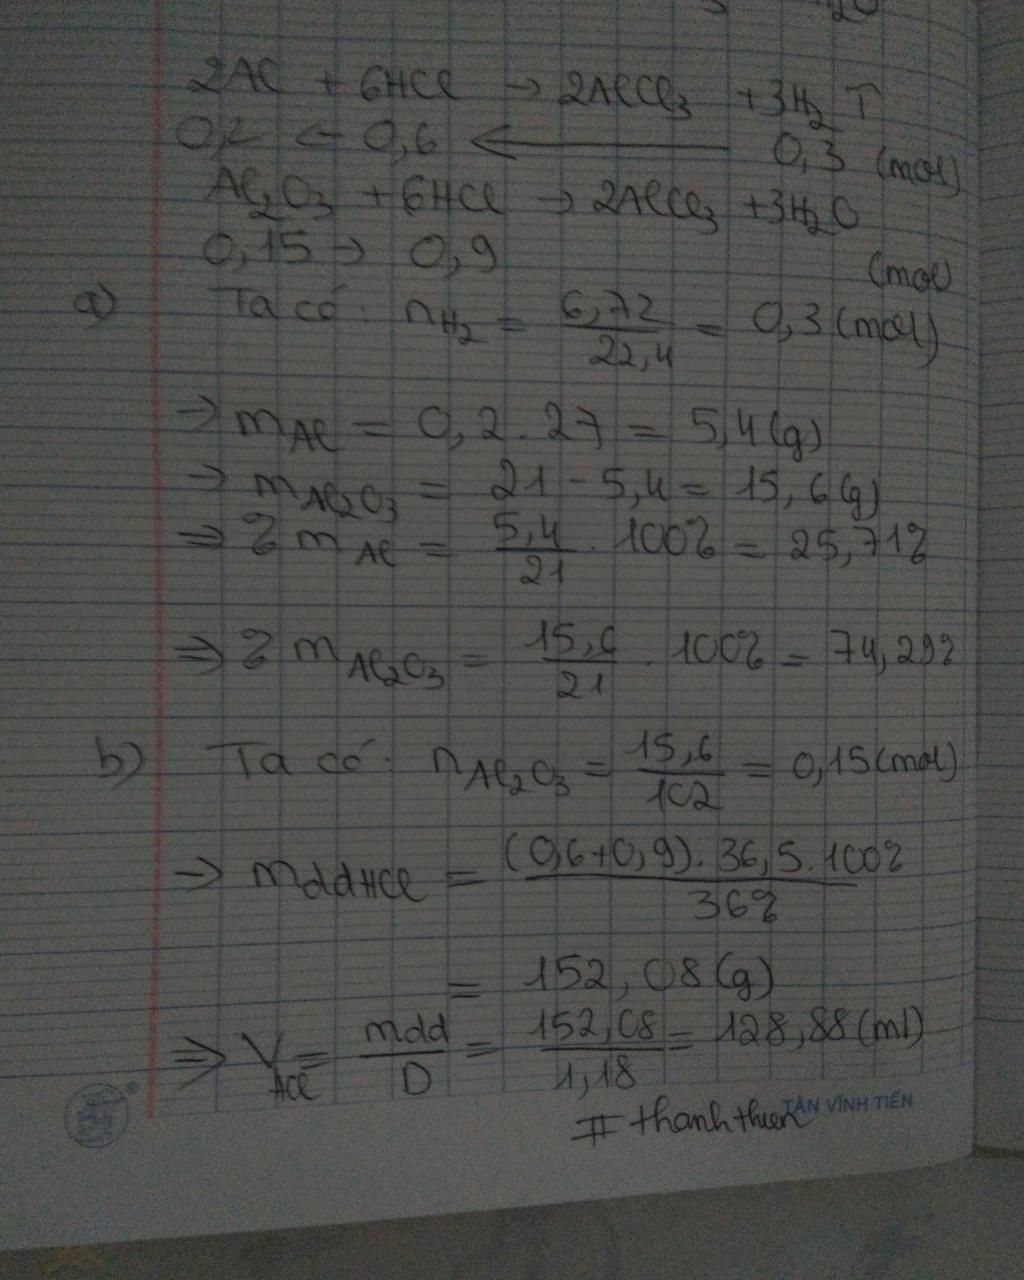 2Al + 6HCl → 2AlCl₃ + 3H₂ ↑
0,2 ← 0,6 ← 0,3 (mol)
Al₂O₃ + 6HCl → 2AlCl₃ + 3H₂O
0,15 → 0,9 (mol)
a) Ta có: nH₂ = 6,72/22,4 = 0,3 (mol)
→ mAl = 0,2.27 = 5,4(g)
→ mAl₂O₃ = 21 - 5,4 = 15,6(g)
⇒ % mAl = 5,4/21 . 100% = 25,71%
⇒ % mAl₂O₃ = 15,6/21 . 100% = 74,29%
b) Ta có: nAl₂O₃ = 15,6/102 = 0,15 (mol)
→ mddHCl = (0,6+0,9).36,5.100%/36%
= 152,08(g)
⇒ VHCl = mdd/D = 152,08/1,18 = 128,88(ml)
TÂN VĨNH TIẾN
# thanhthien